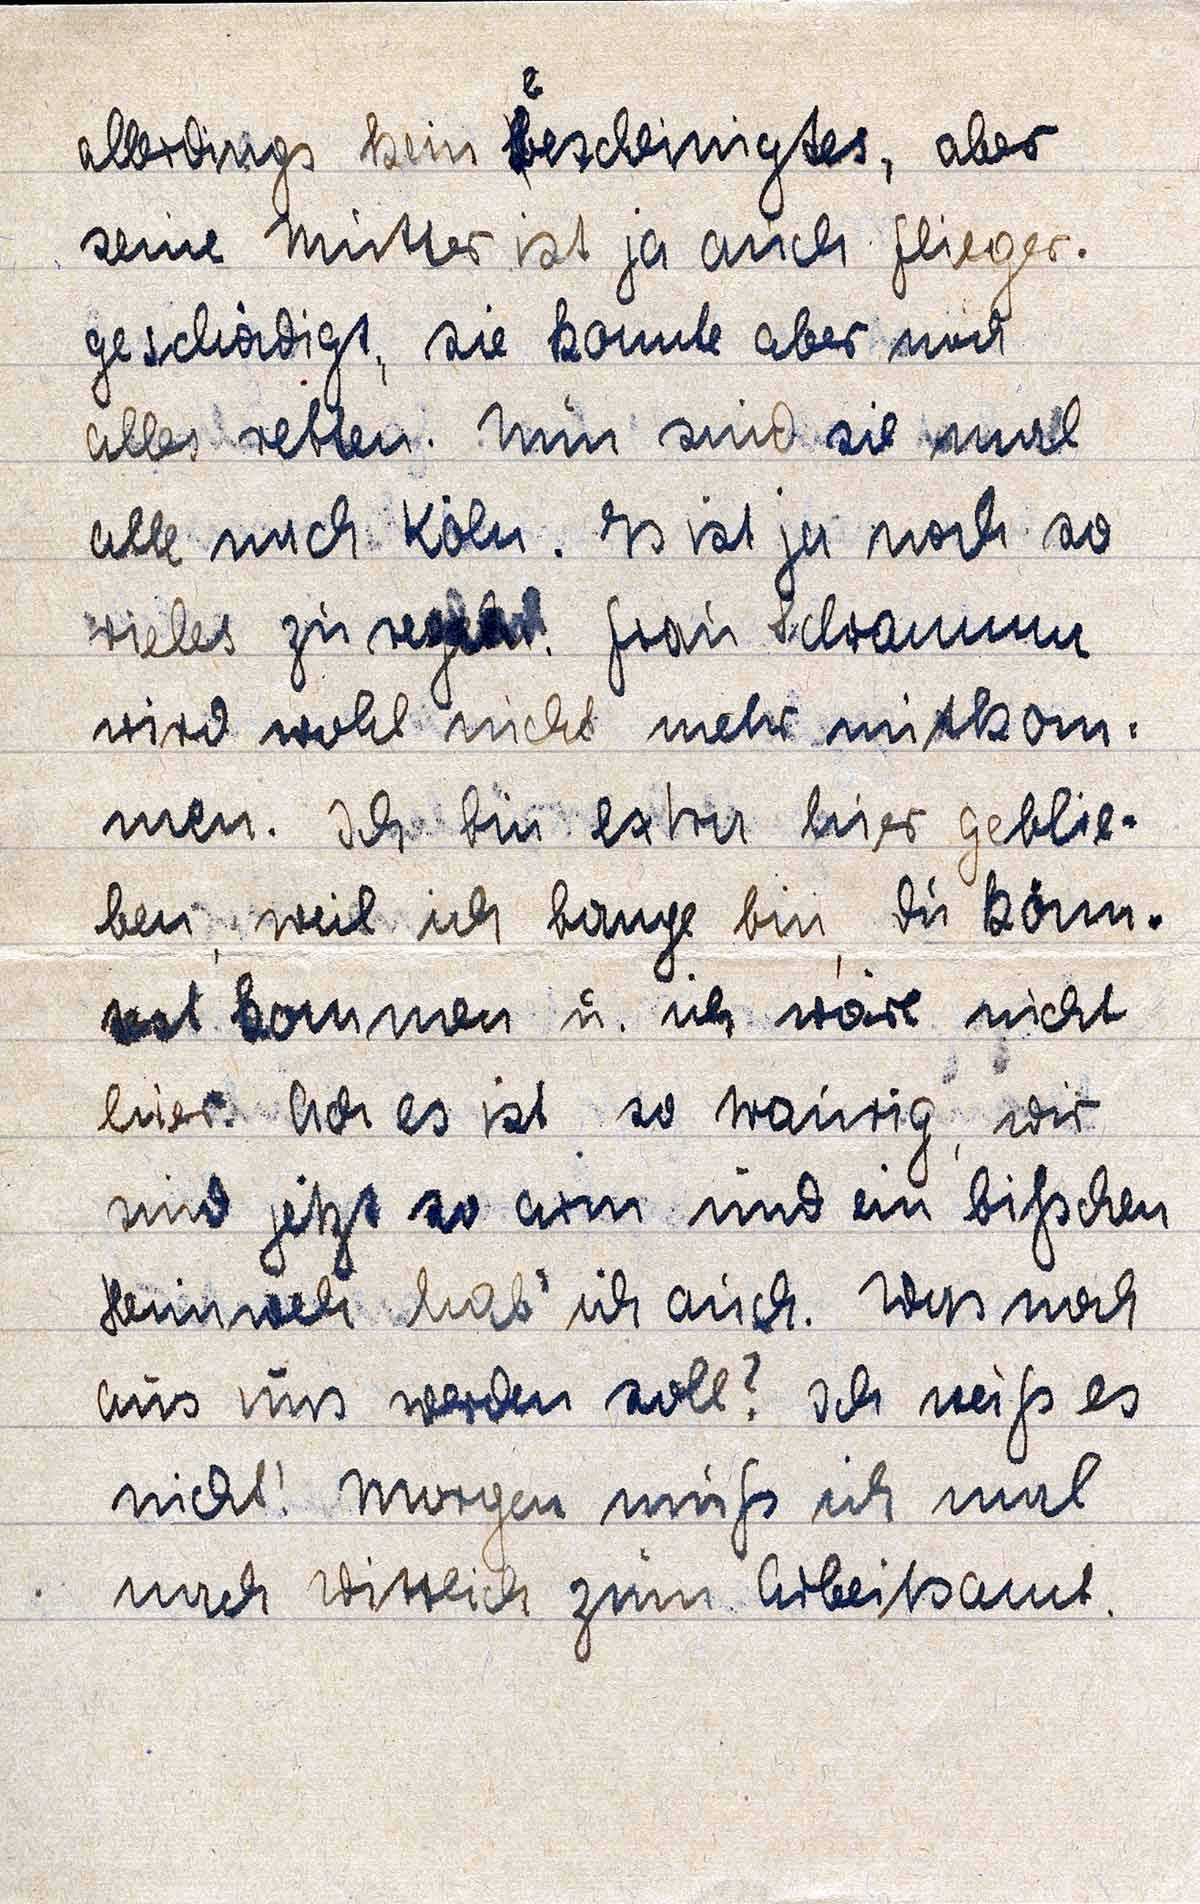 allerdings kein bescheinigtes, aber
seine Mutter ist ja auch flieger-
geschädigt, sie konnte aber noch
alles retten. Nun sind sie mal
alle nach Köln. Es ist ja noch so
vieles zu regeln. Frau Schramm
wird wohl nicht mehr mitkom-
men. Ich bin extra hier geblie-
ben, weil ich bange bin, du könn-
test kommen u. ich wäre nicht
hier. Ach es ist so traurig, wir
sind jetzt so arm und ein bißchen
Heimweh hab' ich auch. Was noch
aus uns werden soll? Ich weiß es
nicht! Morgen muß ich mal
nach Wittlich zum Arbeitsamt.